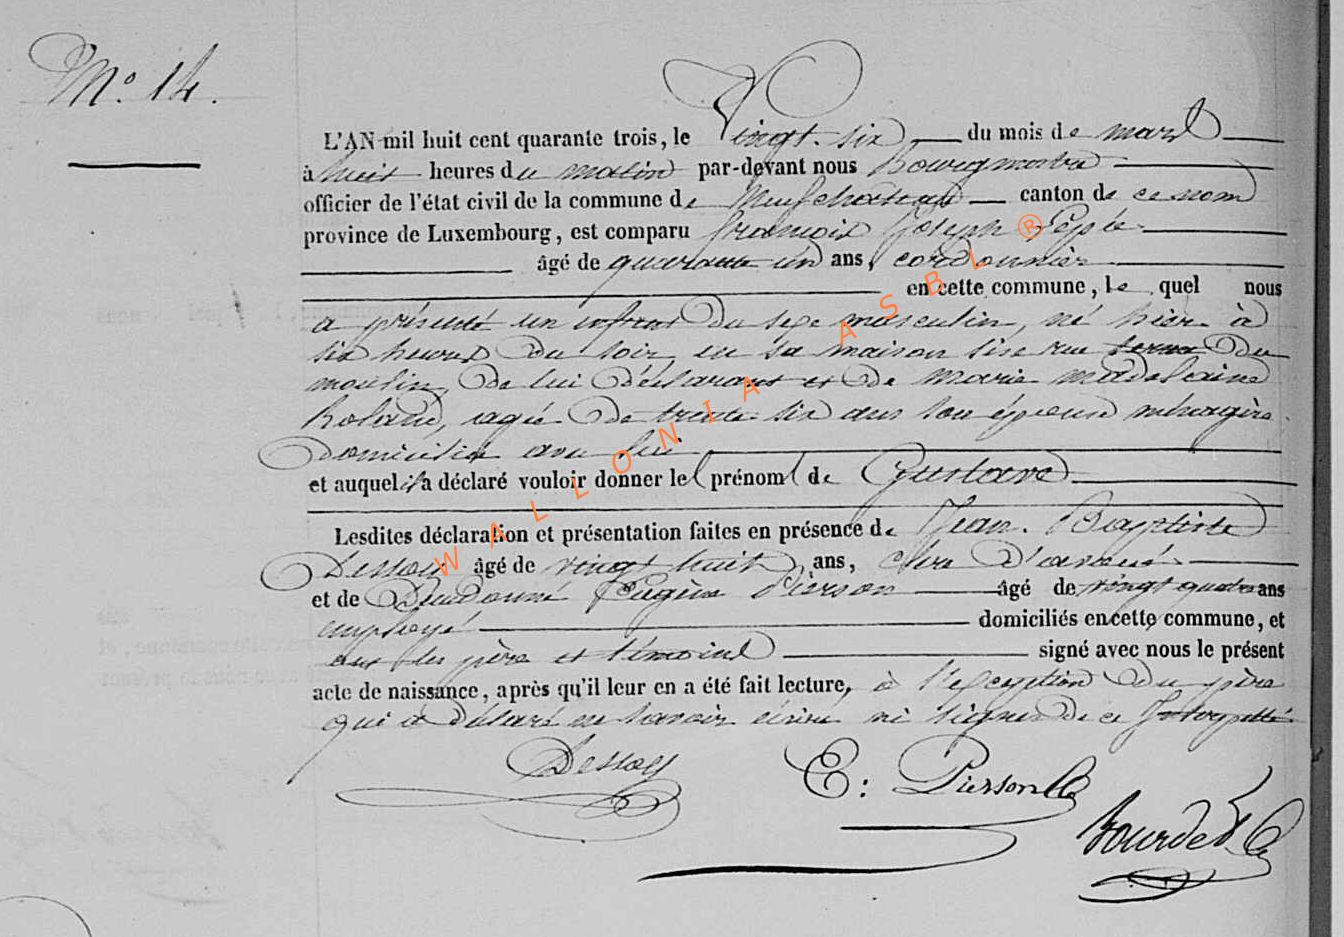 N° 14.
L'AN mil huit cent quarante trois, le Vingt-six du mois de mars
à huit heures du matin par-devant nous Bourgmestre
officier de l'état civil de la commune de Neufchateau canton de ce nom
province de Luxembourg, est comparu francois Joseph
âgé de quarante un ans, cordonnier
en cette commune, le quel nous
a présenté un enfant du sexe masculin, né hier à
six heures du soir, en sa maison sise rue du
moulin, de lui déclarant et de Marie Madelaine
Roland, agée de trente six ans son épouse ménagère
domiciliée avec lui
et auquel il a déclaré vouloir donner le prénom de Gustave
Lesdites déclaration et présentation faites en présence de Jean-Baptiste
Dessoy âgé de vingt huit ans, clerc d'avoué
et de Dieudonné Eugène Pierson âgé de vingt quatre ans
employé domiciliés en cette commune, et
ont les père et témoins signé avec nous le présent
acte de naissance, après qu'il leur en a été fait lecture, à l'exception du père
qui a déclaré ne savoir écrire ni signer de ce
Dessoy
E: Pierson
WALLONIA ASBL ®